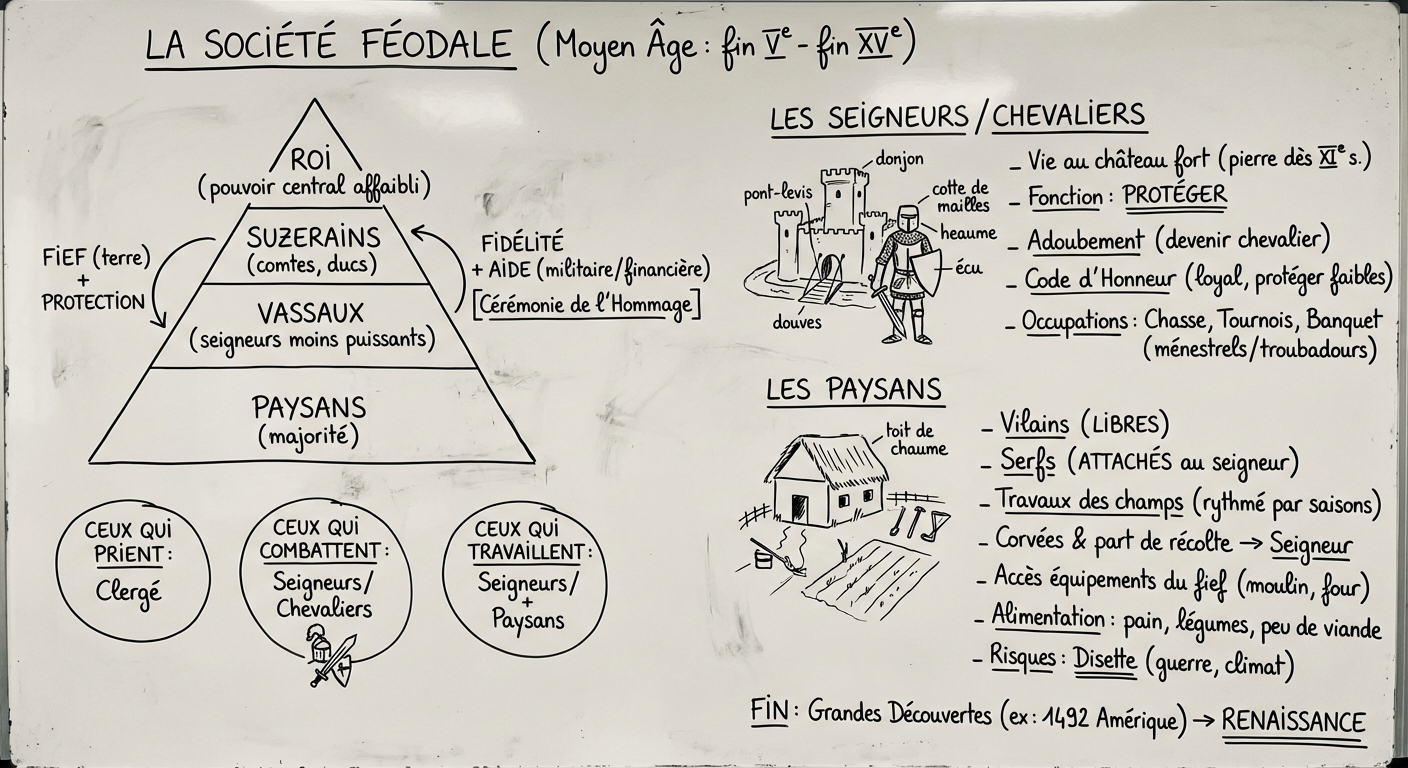 LA SOCIÉTÉ FÉODALE (Moyen Âge : fin Vᵉ - fin XVᵉ)
ROI
(pouvoir central affaibli)
SUZERAINS
(comtes, ducs)
VASSAUX
(seigneurs moins puissants)
PAYSANS
(majorité)
FIEF (terre)
+
PROTECTION
FIDÉLITÉ
+ AIDE (militaire/financière)
[Cérémonie de l'Hommage]
CEUX QUI
PRIENT :
Clergé
CEUX QUI
COMBATTENT :
Seigneurs/
Chevaliers
CEUX QUI
TRAVAILLENT :
Seigneurs/
+
Paysans
LES SEIGNEURS / CHEVALIERS
donjon
pont-levis
cotte de
mailles
heaume
écu
douves
- Vie au château fort (pierre dès XIᵉ s.)
- Fonction : PROTÉGER
- Adoubement (devenir chevalier)
- Code d'Honneur (loyal, protéger faibles)
- Occupations : Chasse, Tournois, Banquet
(ménestrels/troubadours)
LES PAYSANS
toit de
chaume
- Vilains (LIBRES)
- Serfs (ATTACHÉS au seigneur)
- Travaux des champs (rythmé par saisons)
- Corvées & part de récolte → Seigneur
- Accès équipements du fief (moulin, four)
- Alimentation : pain, légumes, peu de viande
- Risques : Disette (guerre, climat)
FIN : Grandes Découvertes (ex : 1492 Amérique) → RENAISSANCE